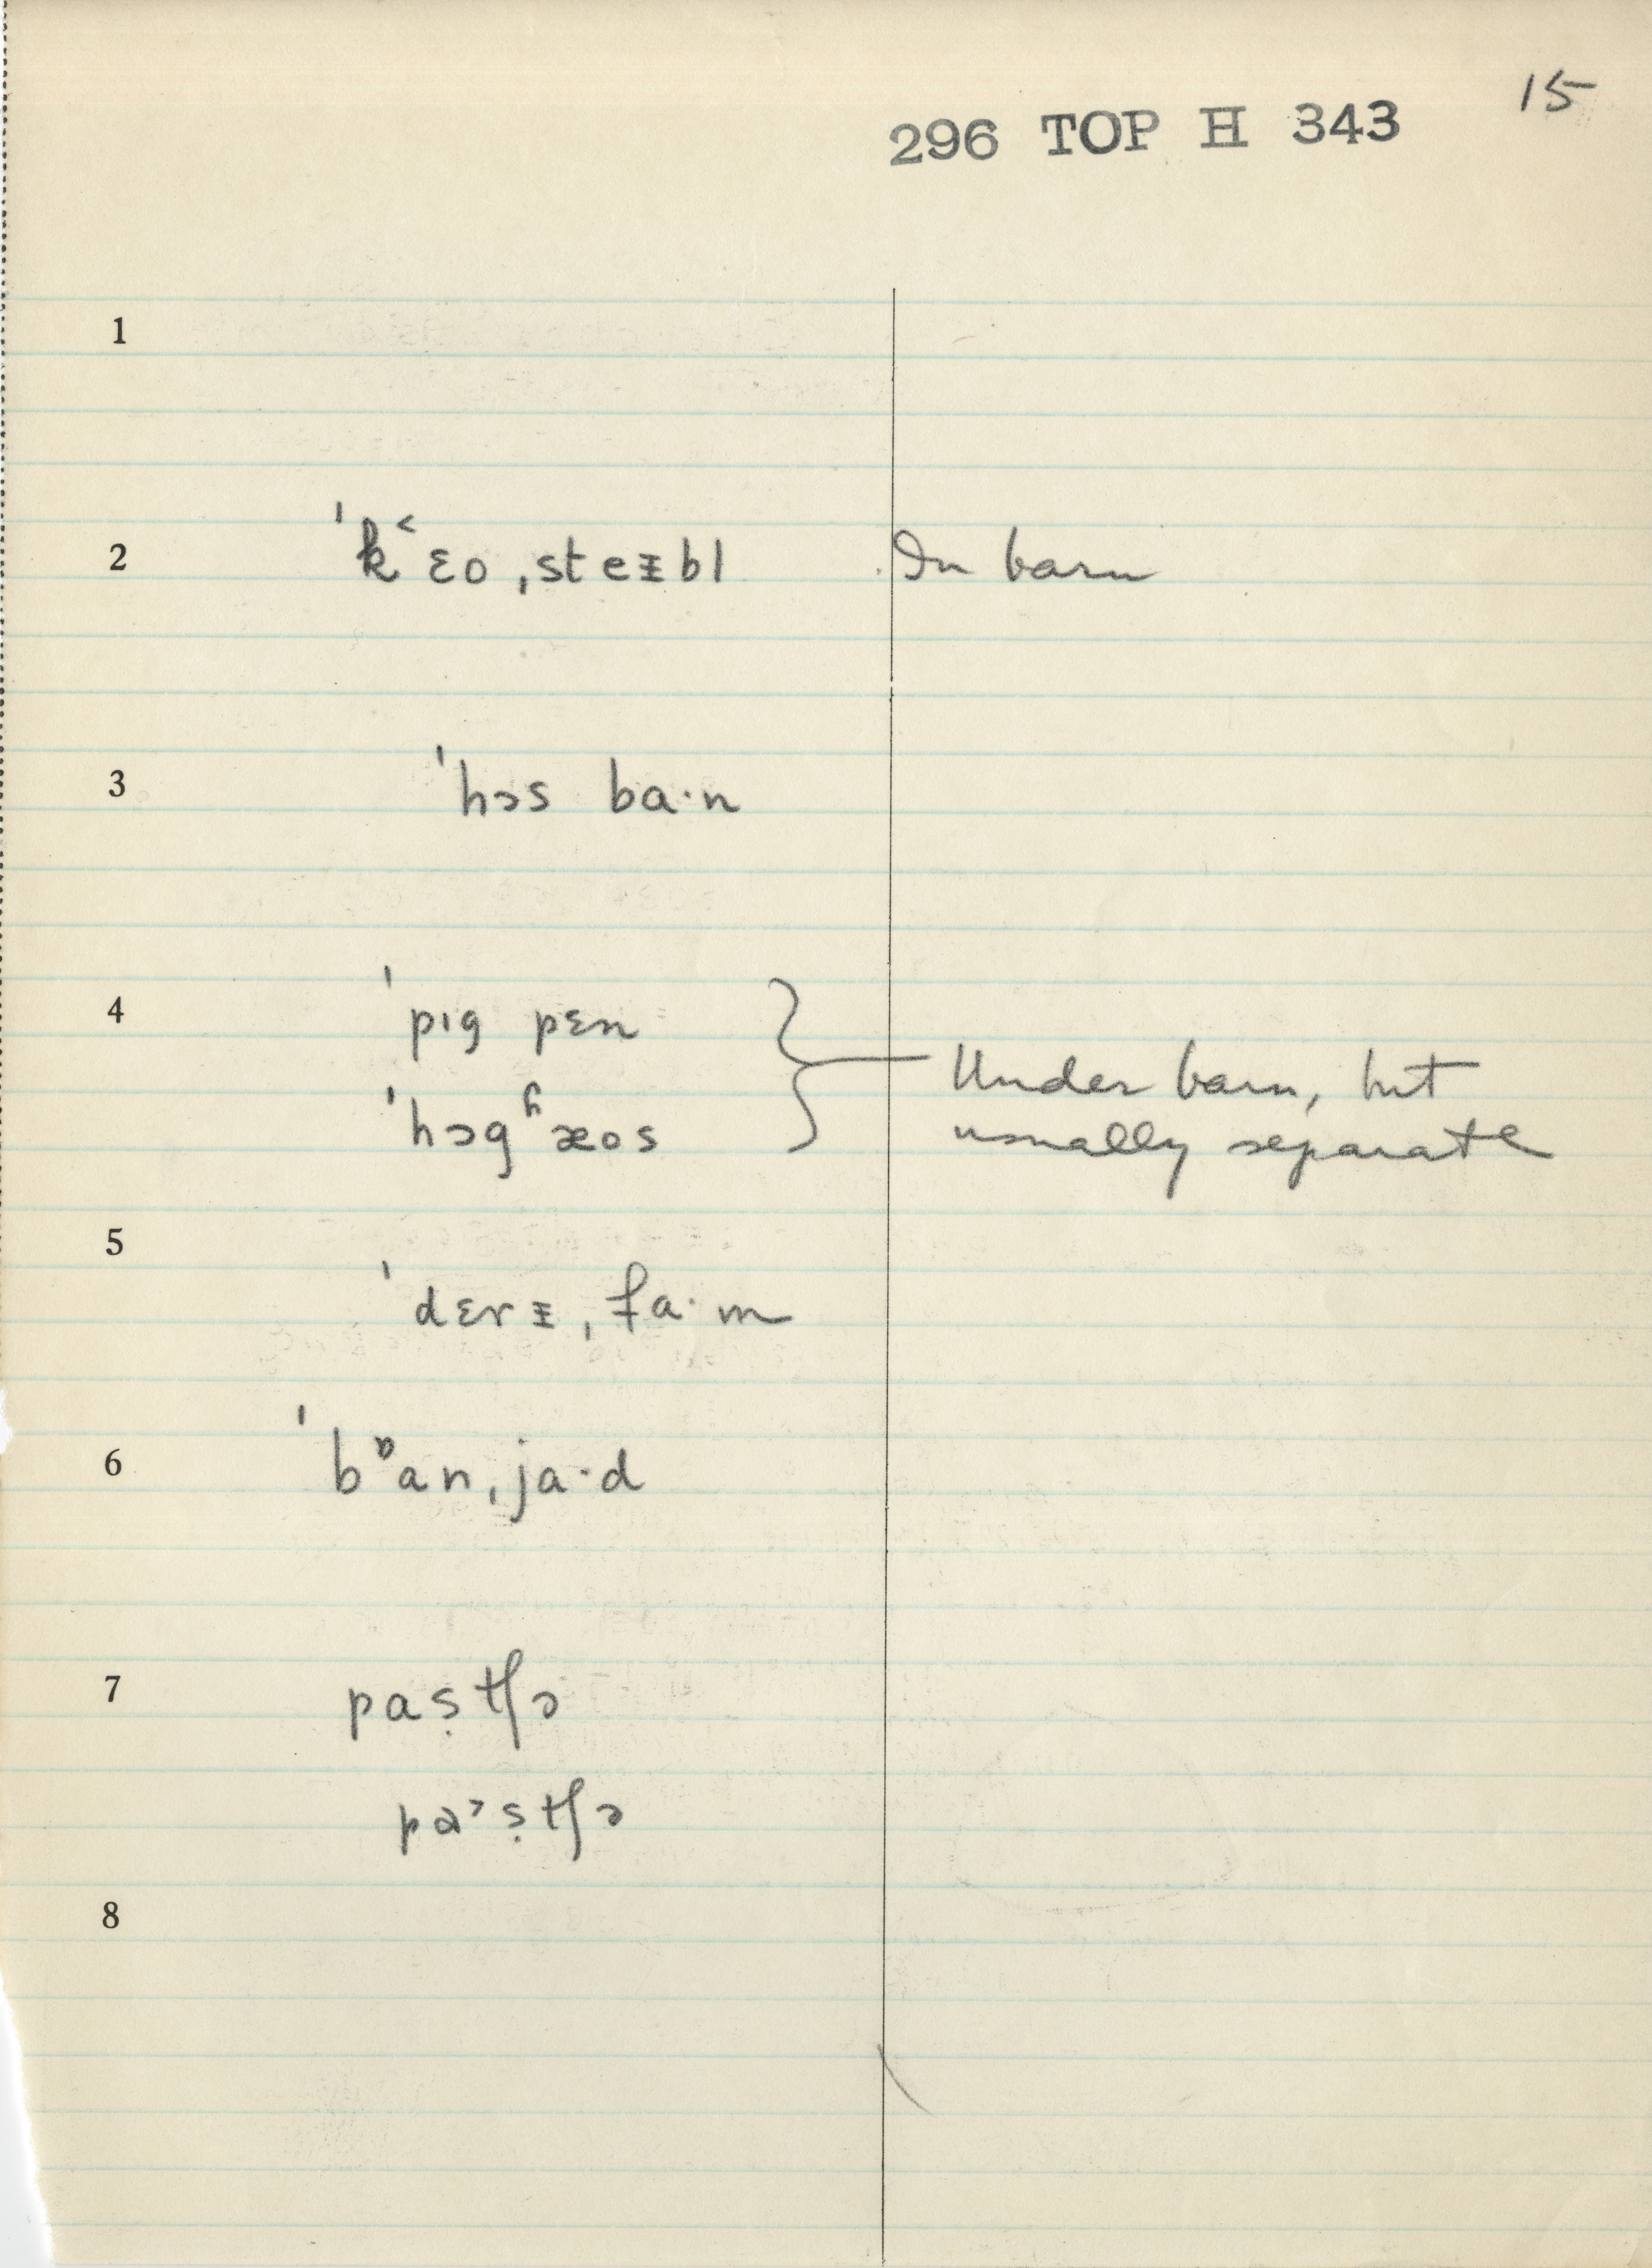 15
296 TOP H 343
1
2 ˈk˂ɛoˌsteᵻbl In barn
3 ˈhɔs ba·n
4 ˈpıg pɛn
ˈhɔgʱæos
Under barn, but
usually separate
5 ˈdɛrᵻˌfa·m
6 ˈbᶛanˌja·d
7 paṣtʃə
pa˃ṣtʃə
8